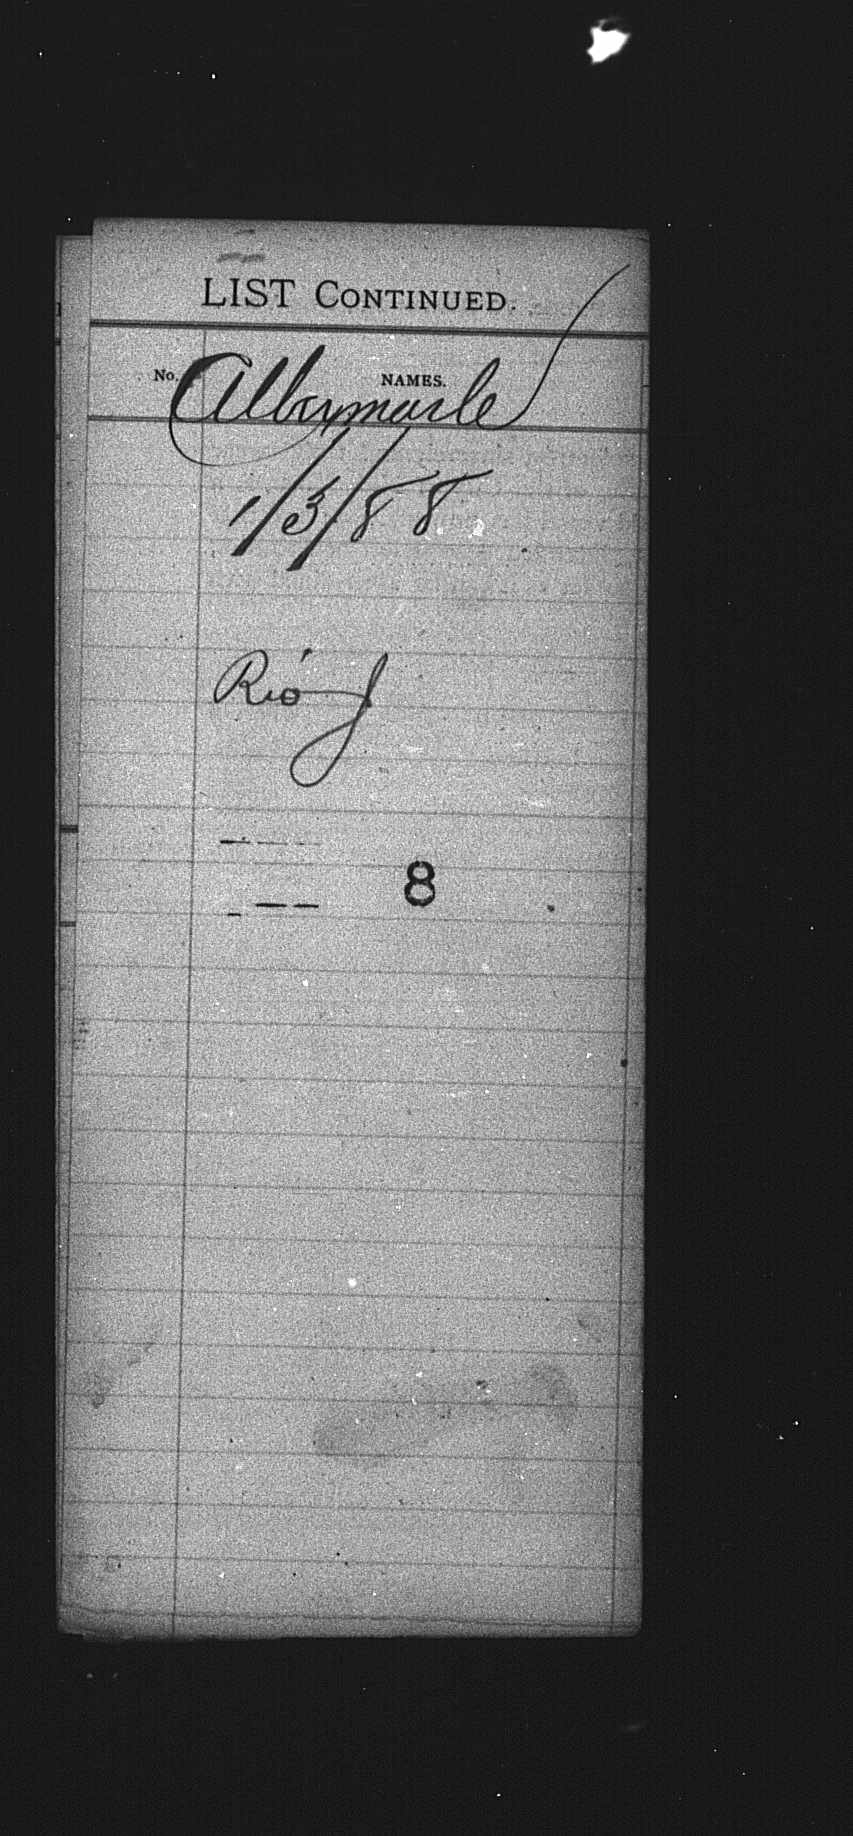 LIST CONTINUED.
No. NAMES.
Albermarle
1/3/88
Rio J
8